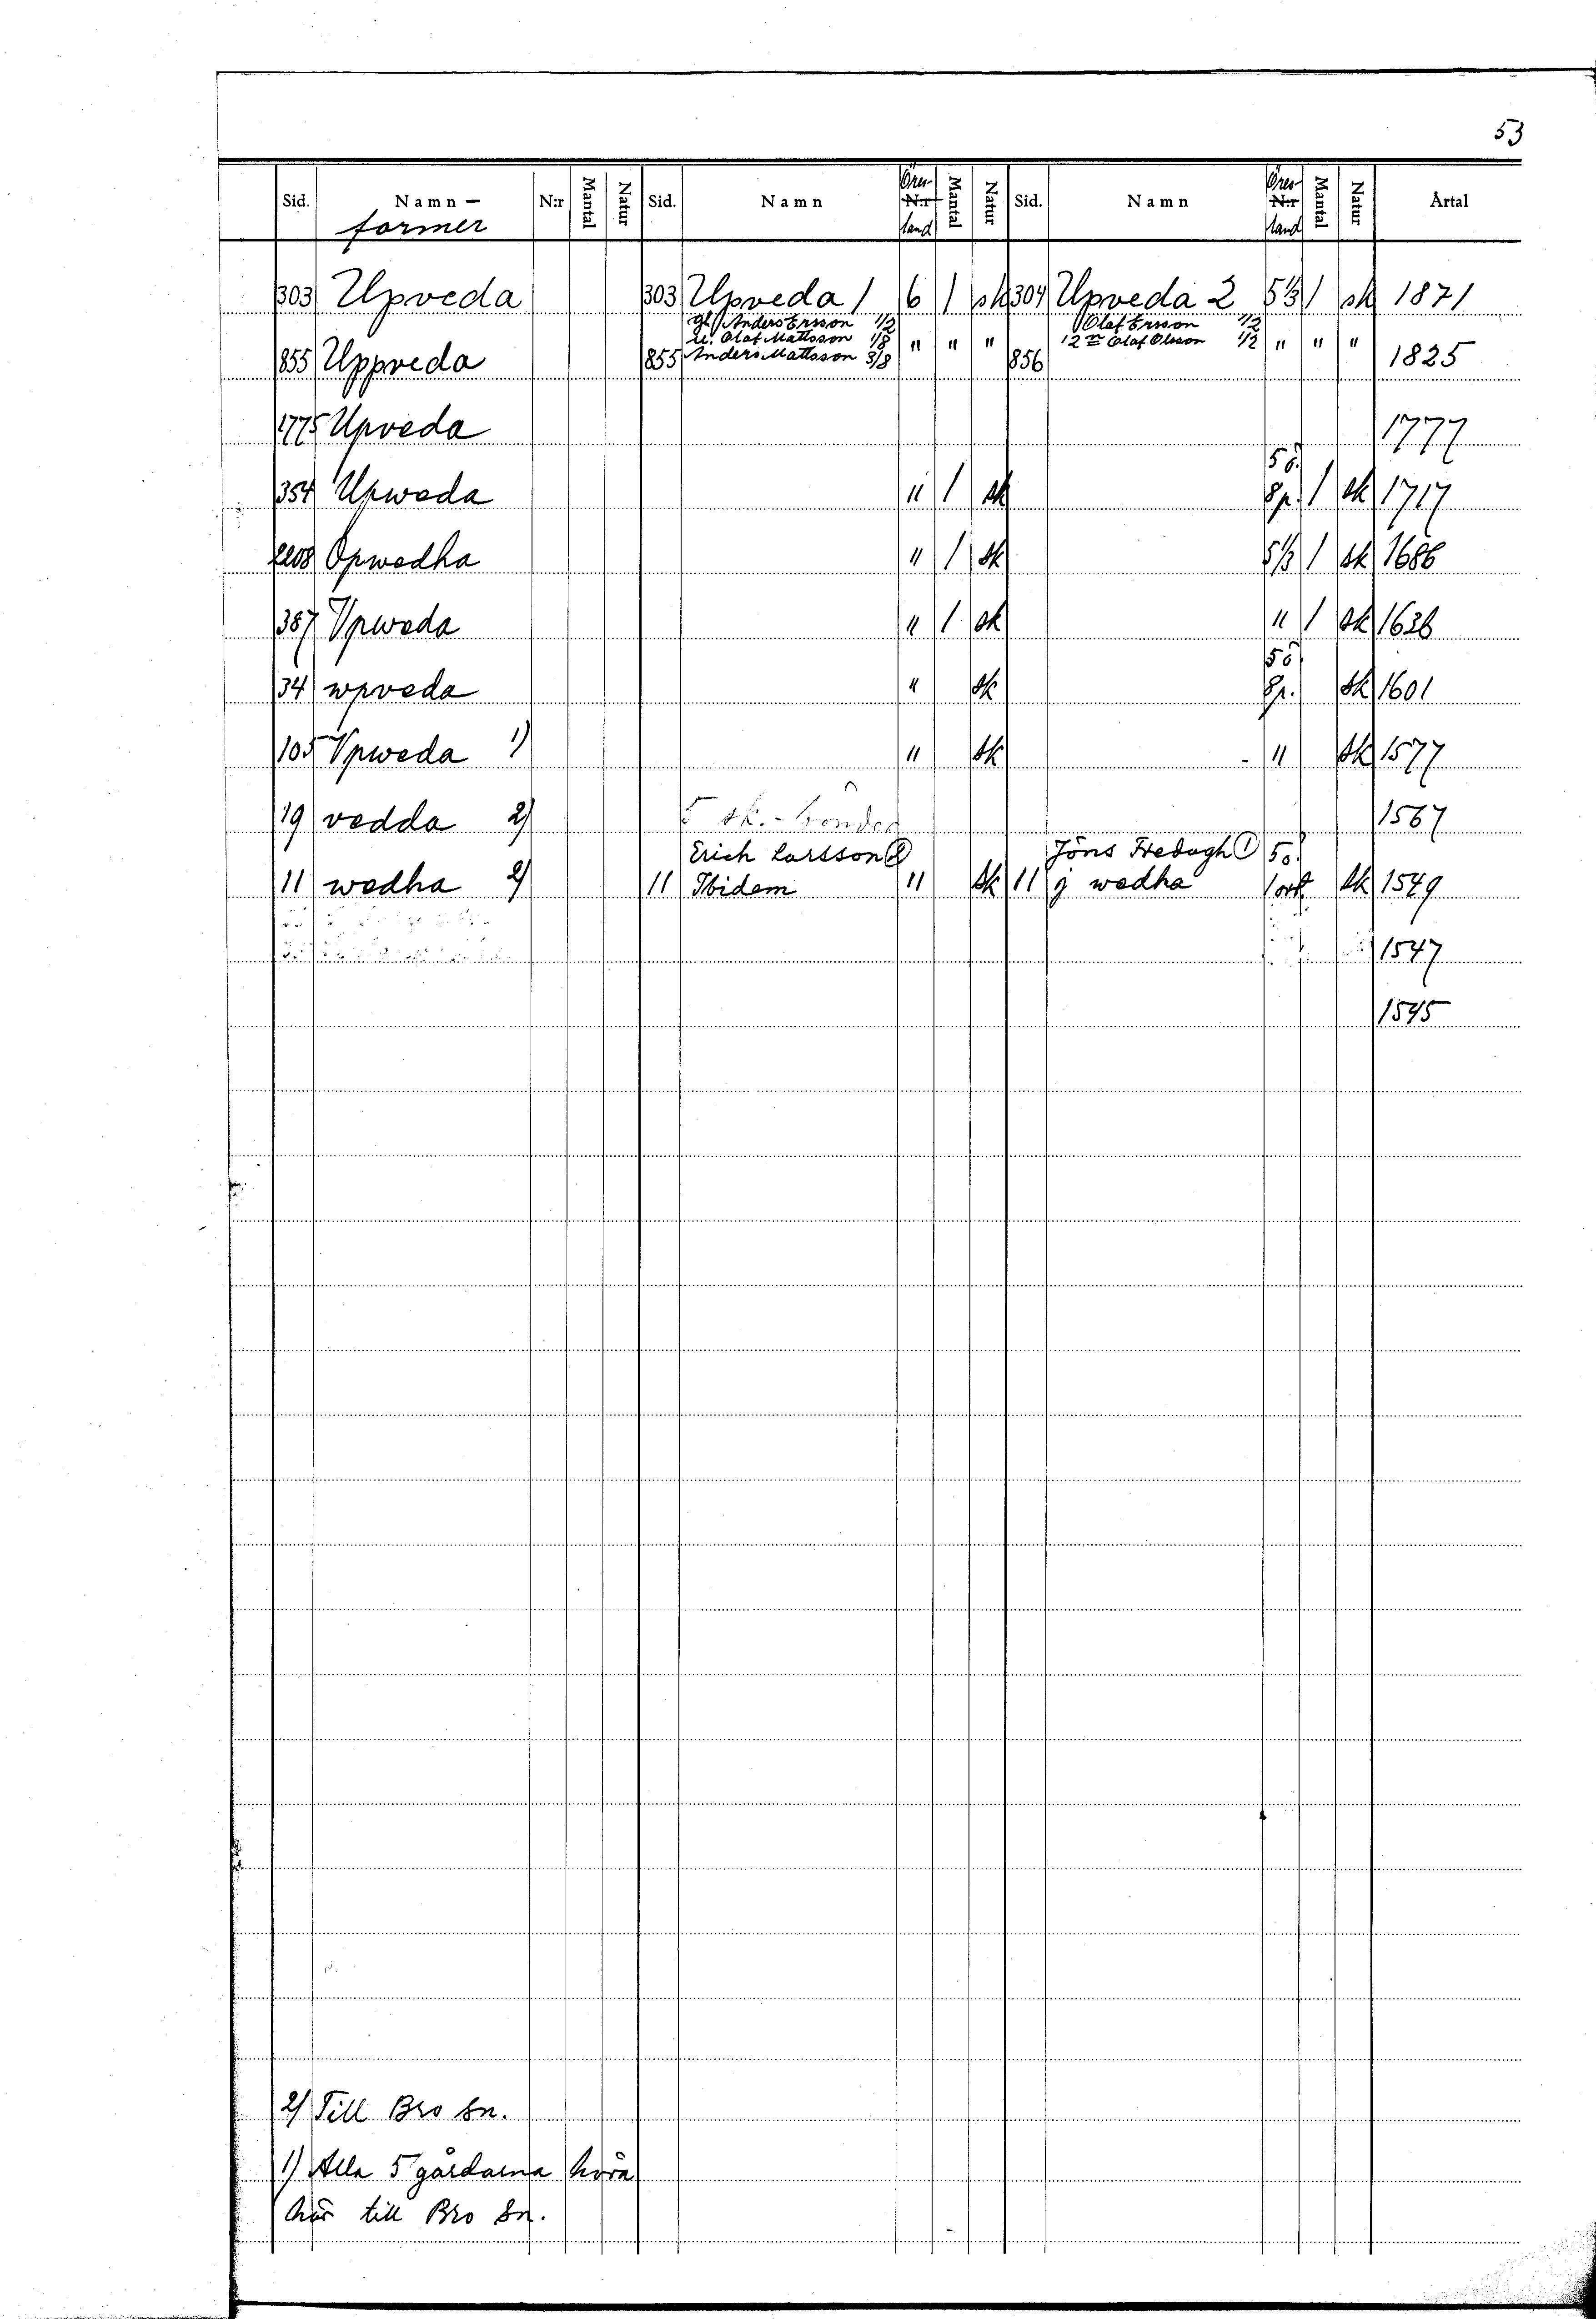 53
Sid. Namn- N:r Mantal Natur Sid. Namn Öres- N:r land Mantal Natur Sid. Namn Öres- N:r land Mantal Natur Årtal
former
303 Upveda 303 Upveda 1 6 1 sk 304 Upveda 2 5 1/3 1 sk 1871
Anders Ersson 1/2 Olof Ersson 1/2
Olof Mattsson 1/8 " " " 12 Olof Olsson 1/2 " " "
855 Uppveda 855 Anders Mattsson 3/8 856 1825
1775 Upveda 1777
5 ö.
354 Upweda " 1 sk 8 p. 1 sk 1717
2208 Opwedha " 1 sk 5 1/3 1 sk 1686
387 Vpweda " 1 sk " 1 sk 1636
5 ö
34 wpveda " sk 8 p. sk 1601
105 Vpweda 1) " sk " sk 1577
19 vedda 2) 5 sk.-bönder 1567
Erich Larsson 2 Jöns Fredagh 1 5 ö.
11 wedha 2) 11 Ibidem " sk 11 j wedha 1 ort. sk 1549
1547
1545
2) Till Bro sn.
1) Alla 5 gårdarna höra
här till Bro sn.